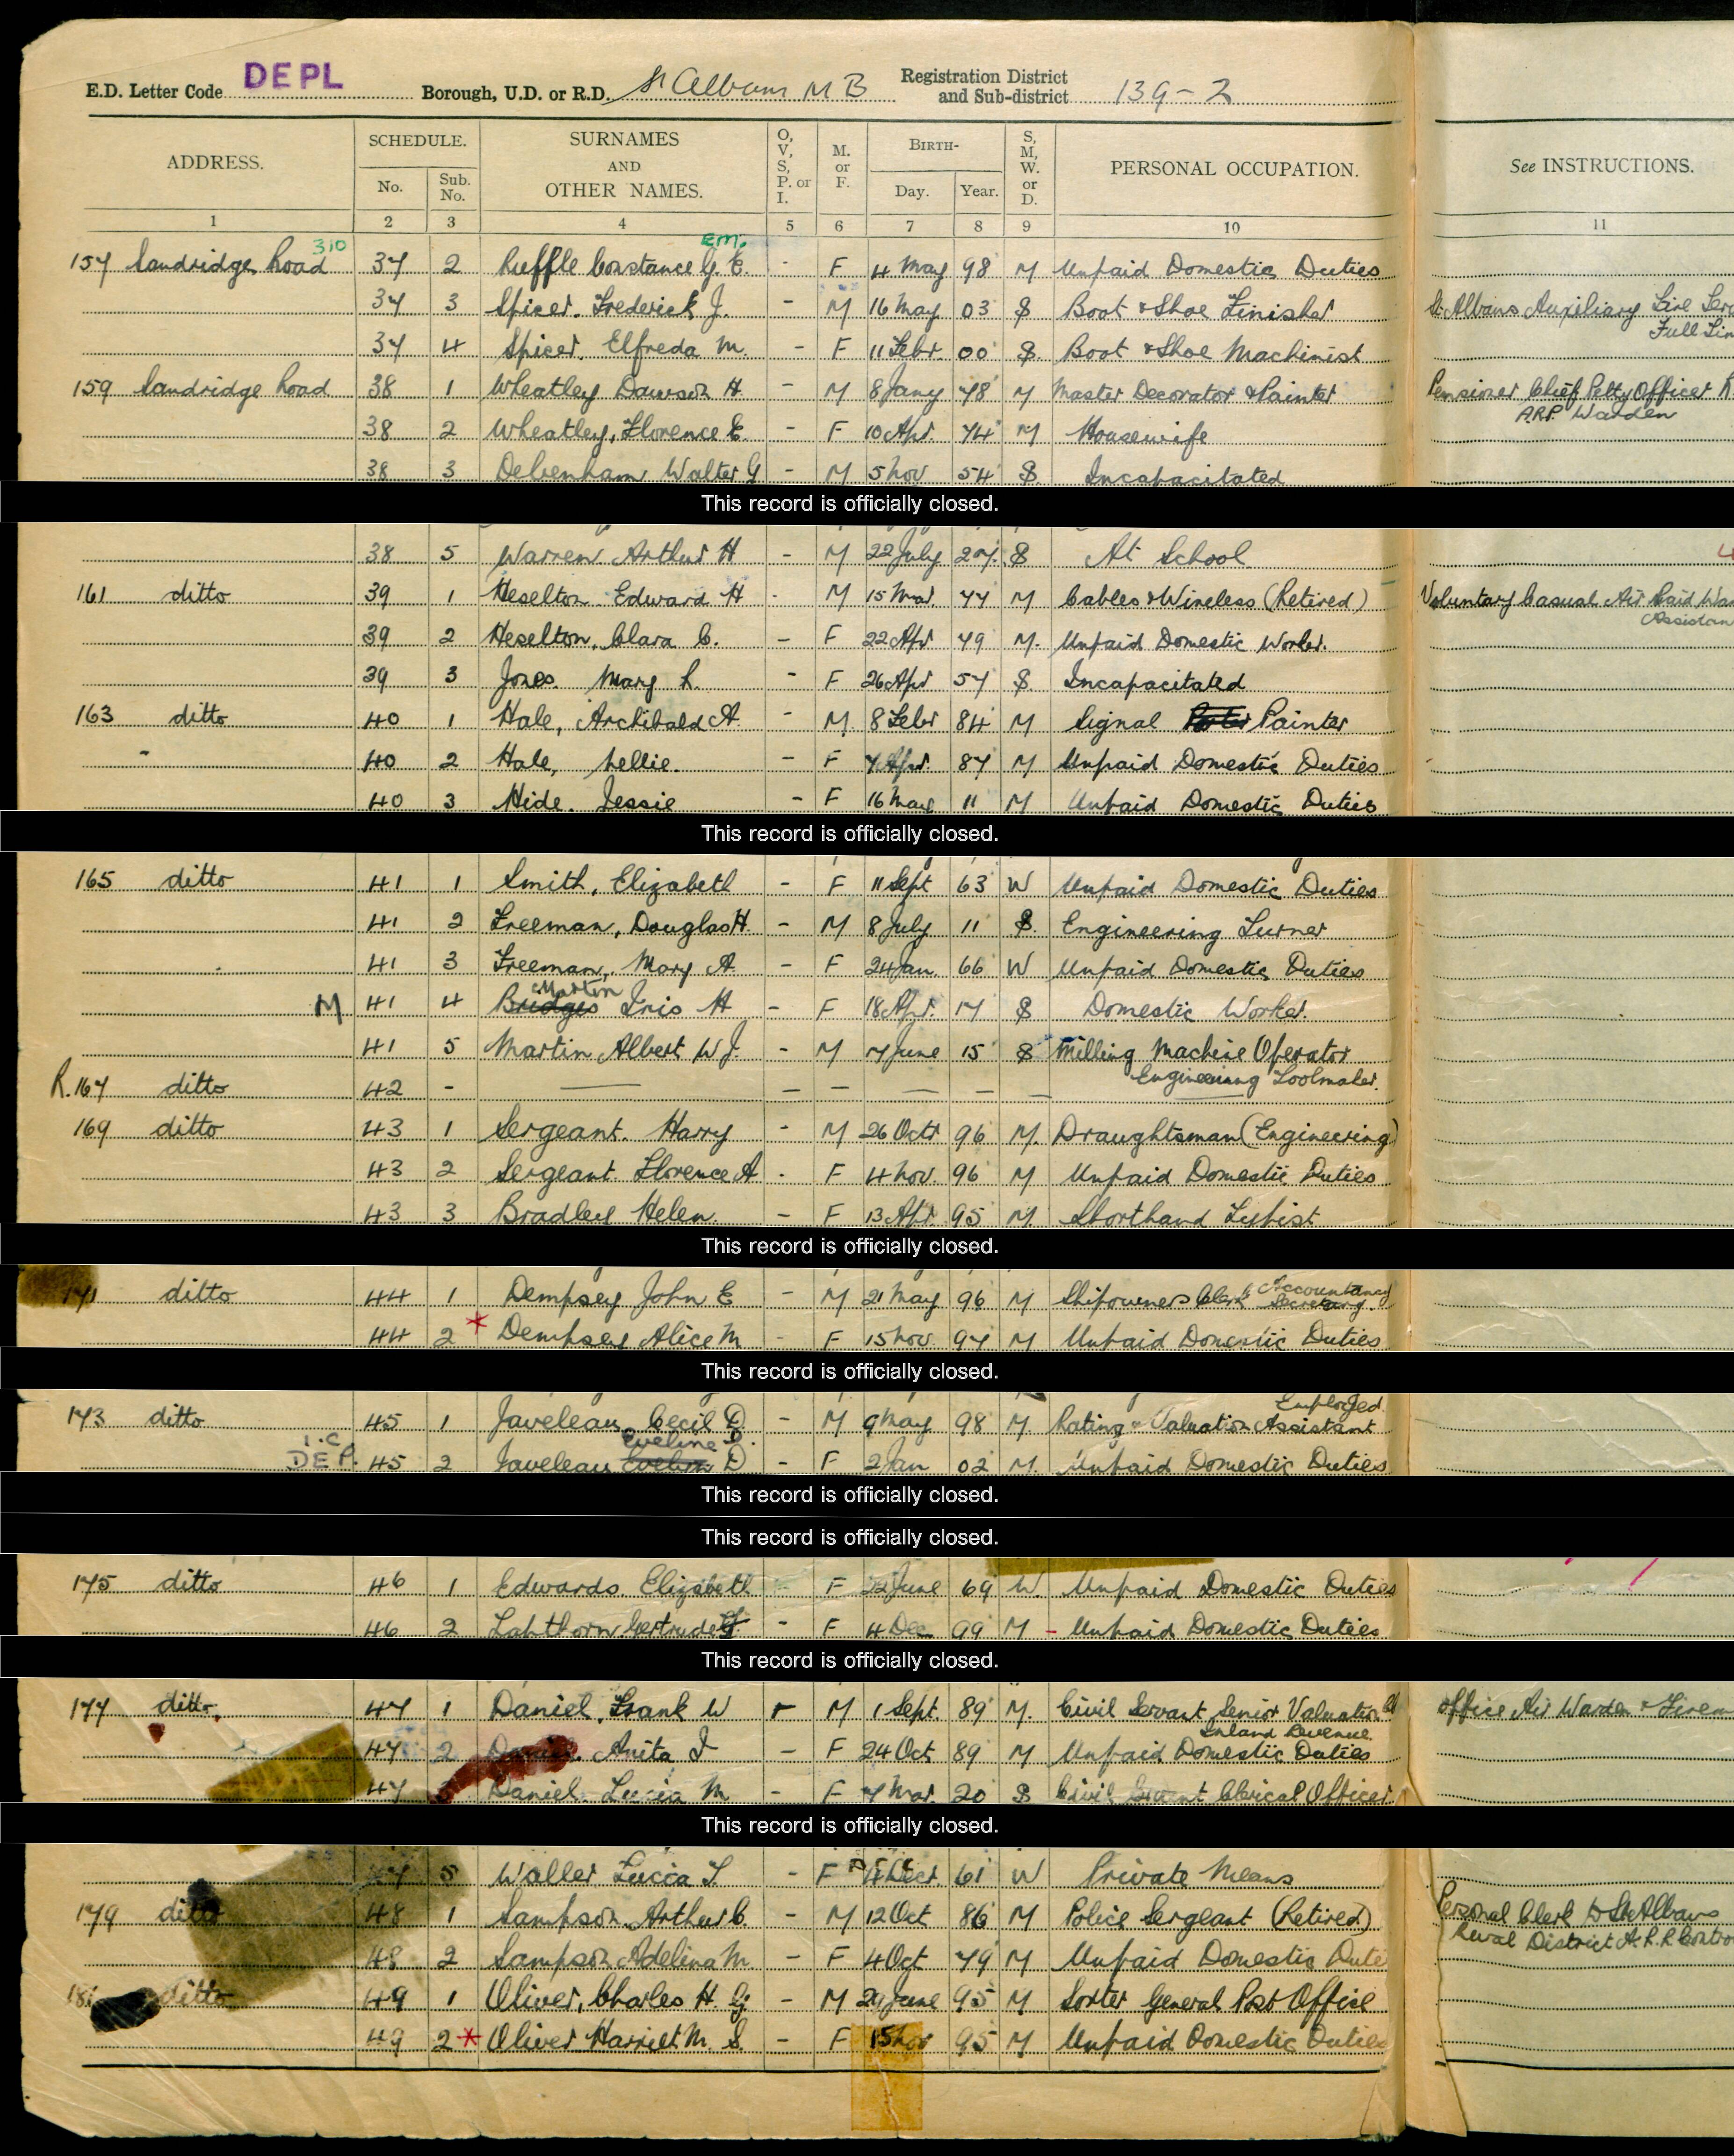 E.D. Letter Code DEPL Borough, U.D. or R.D. St Albans M B Registration District and Sub-district 139-2
ADDRESS. SCHEDULE. No. Sub. No. SURNAMES AND OTHER NAMES. O, V, S, P. or I. M. or F. BIRTH- Day. Year. S, M, W. or D. PERSONAL OCCUPATION. See INSTRUCTIONS.
1 2 3 4 5 6 7 8 9 10 11
310 Em.
157 Sandridge Road 37 2 Ruffle Constance G. E. - F 4 May 98 M Unpaid Domestic Duties
37 3 Spicer. Frederick J. - M 16 May 03 S Boot & Shoe Finisher St Albans Auxiliary Fire
Full
37 4 Spicer. Elfreda M. - F 11 Febr. 00 S. Boot & Shoe Machinist
159 Sandridge Road 38 1 Wheatley Dawson H. - M 8 Jany 78 M Master Decorator & Painter Pensioner Chief Petty Officer R
A.R.P. Warden
38 2 Wheatley, Florence E. - F 10 Apr. 74 M Housewife
38 3 Debenham Walter G - M 5 Nov 54 S. Incapacitated
This record is officially closed.
38 5 Warren Arthur H - M 22 July 27 S At School
161 ditto 39 1 Heselton Edward H - M 15 Mar. 77 M Cables & Wireless (Retired) Voluntary Casual Air Raid
39 2 Heselton, Clara C. - F 22 Apr 79 M. Unpaid Domestic Worker.
39 3 Jones. Mary L. - F 26 Apr 57 S. Incapacitated
163 ditto 40 1 Hale, Archibald A. - M. 8 Febr 84 M Signal Painter
40 2 Hale, Nellie. - F 7 Apr. 87 M Unpaid Domestic Duties
40 3 Hide. Jessie - F 16 May 11 M Unpaid Domestic Duties
This record is officially closed.
165 ditto 41 1 Smith, Elizabeth - F 11 Sept 63 W Unpaid Domestic Duties
41 2 Freeman, Douglas H. - M 8 July 11 S. Engineering Turner
41 3 Freeman, Mary A. - F 24 Jan. 66 W Unpaid Domestic Duties
Martin
M 41 4 Bridges Iris H - F 18 Apr. 17 S Domestic Worker.
41 5 Martin Albert W J. - M 7 June 15 S Milling Machine Operator
Engineering Toolmaker.
R. 167 ditto 42 - — — — — — —
169 ditto 43 1 Sergeant. Harry - M 26 Octr 96 M. Draughtsman (Engineering)
43 2 Sergeant Florence A - F 4 Nov. 96 M Unpaid Domestic Duties
43 3 Bradley Helen. - F 13 Apr. 95 M. Shorthand Typist
This record is officially closed.
171 ditto 44 1 Dempsey John E - M 21 May 96 M Shipowners Clerk Accountancy
Secretary.
44 2 * Dempsey Alice M - F 15 Nov. 97 M Unpaid Domestic Duties
This record is officially closed.
Employed.
173 ditto 45 1 Javeleau, Cecil D. - M 9 May 98 M. Rating & Valuation Assistant
I.C Eveline D.
DEP. 45 2 Javeleau Evelyn D - F 2 Jan 02 M. Unpaid Domestic Duties
This record is officially closed.
This record is officially closed.
175 ditto 46 1 Edwards. Elizabeth F 22 June 69 W. Unpaid Domestic Duties
46 2 Lapthorn Gertrude - F 4 Dec 99 M - Unpaid Domestic Duties
This record is officially closed.
177 ditto 47 1 Daniel, Frank W - M 1 Sept. 89 M. Civil Servant Senior Valuation office Air Warden &
Inland Revenue.
47 2 Anita I - F 24 Oct 89 M Unpaid Domestic Duties
47 3 Daniel. Lucia M - F 7 Mar. 20 S Civil Servant Clerical Officer.
This record is officially closed.
47 5 Waller Lucia T. - F 61 W Private Means
179 ditto 48 1 Sampson. Arthur C. - M 12 Oct 86 M Police Sergeant (Retired) Personal Clerk to St Albans
Rural District A.R.P.
48 2 Sampson Adelina M - F 4 Oct 79 M Unpaid Domestic
181 ditto 49 1 Oliver, Charles H. G. - M 29 June 95 M Sorter General Post Office
49 2 * Oliver Harriet M. S. - F 15 Nov 95 M Unpaid Domestic Duties